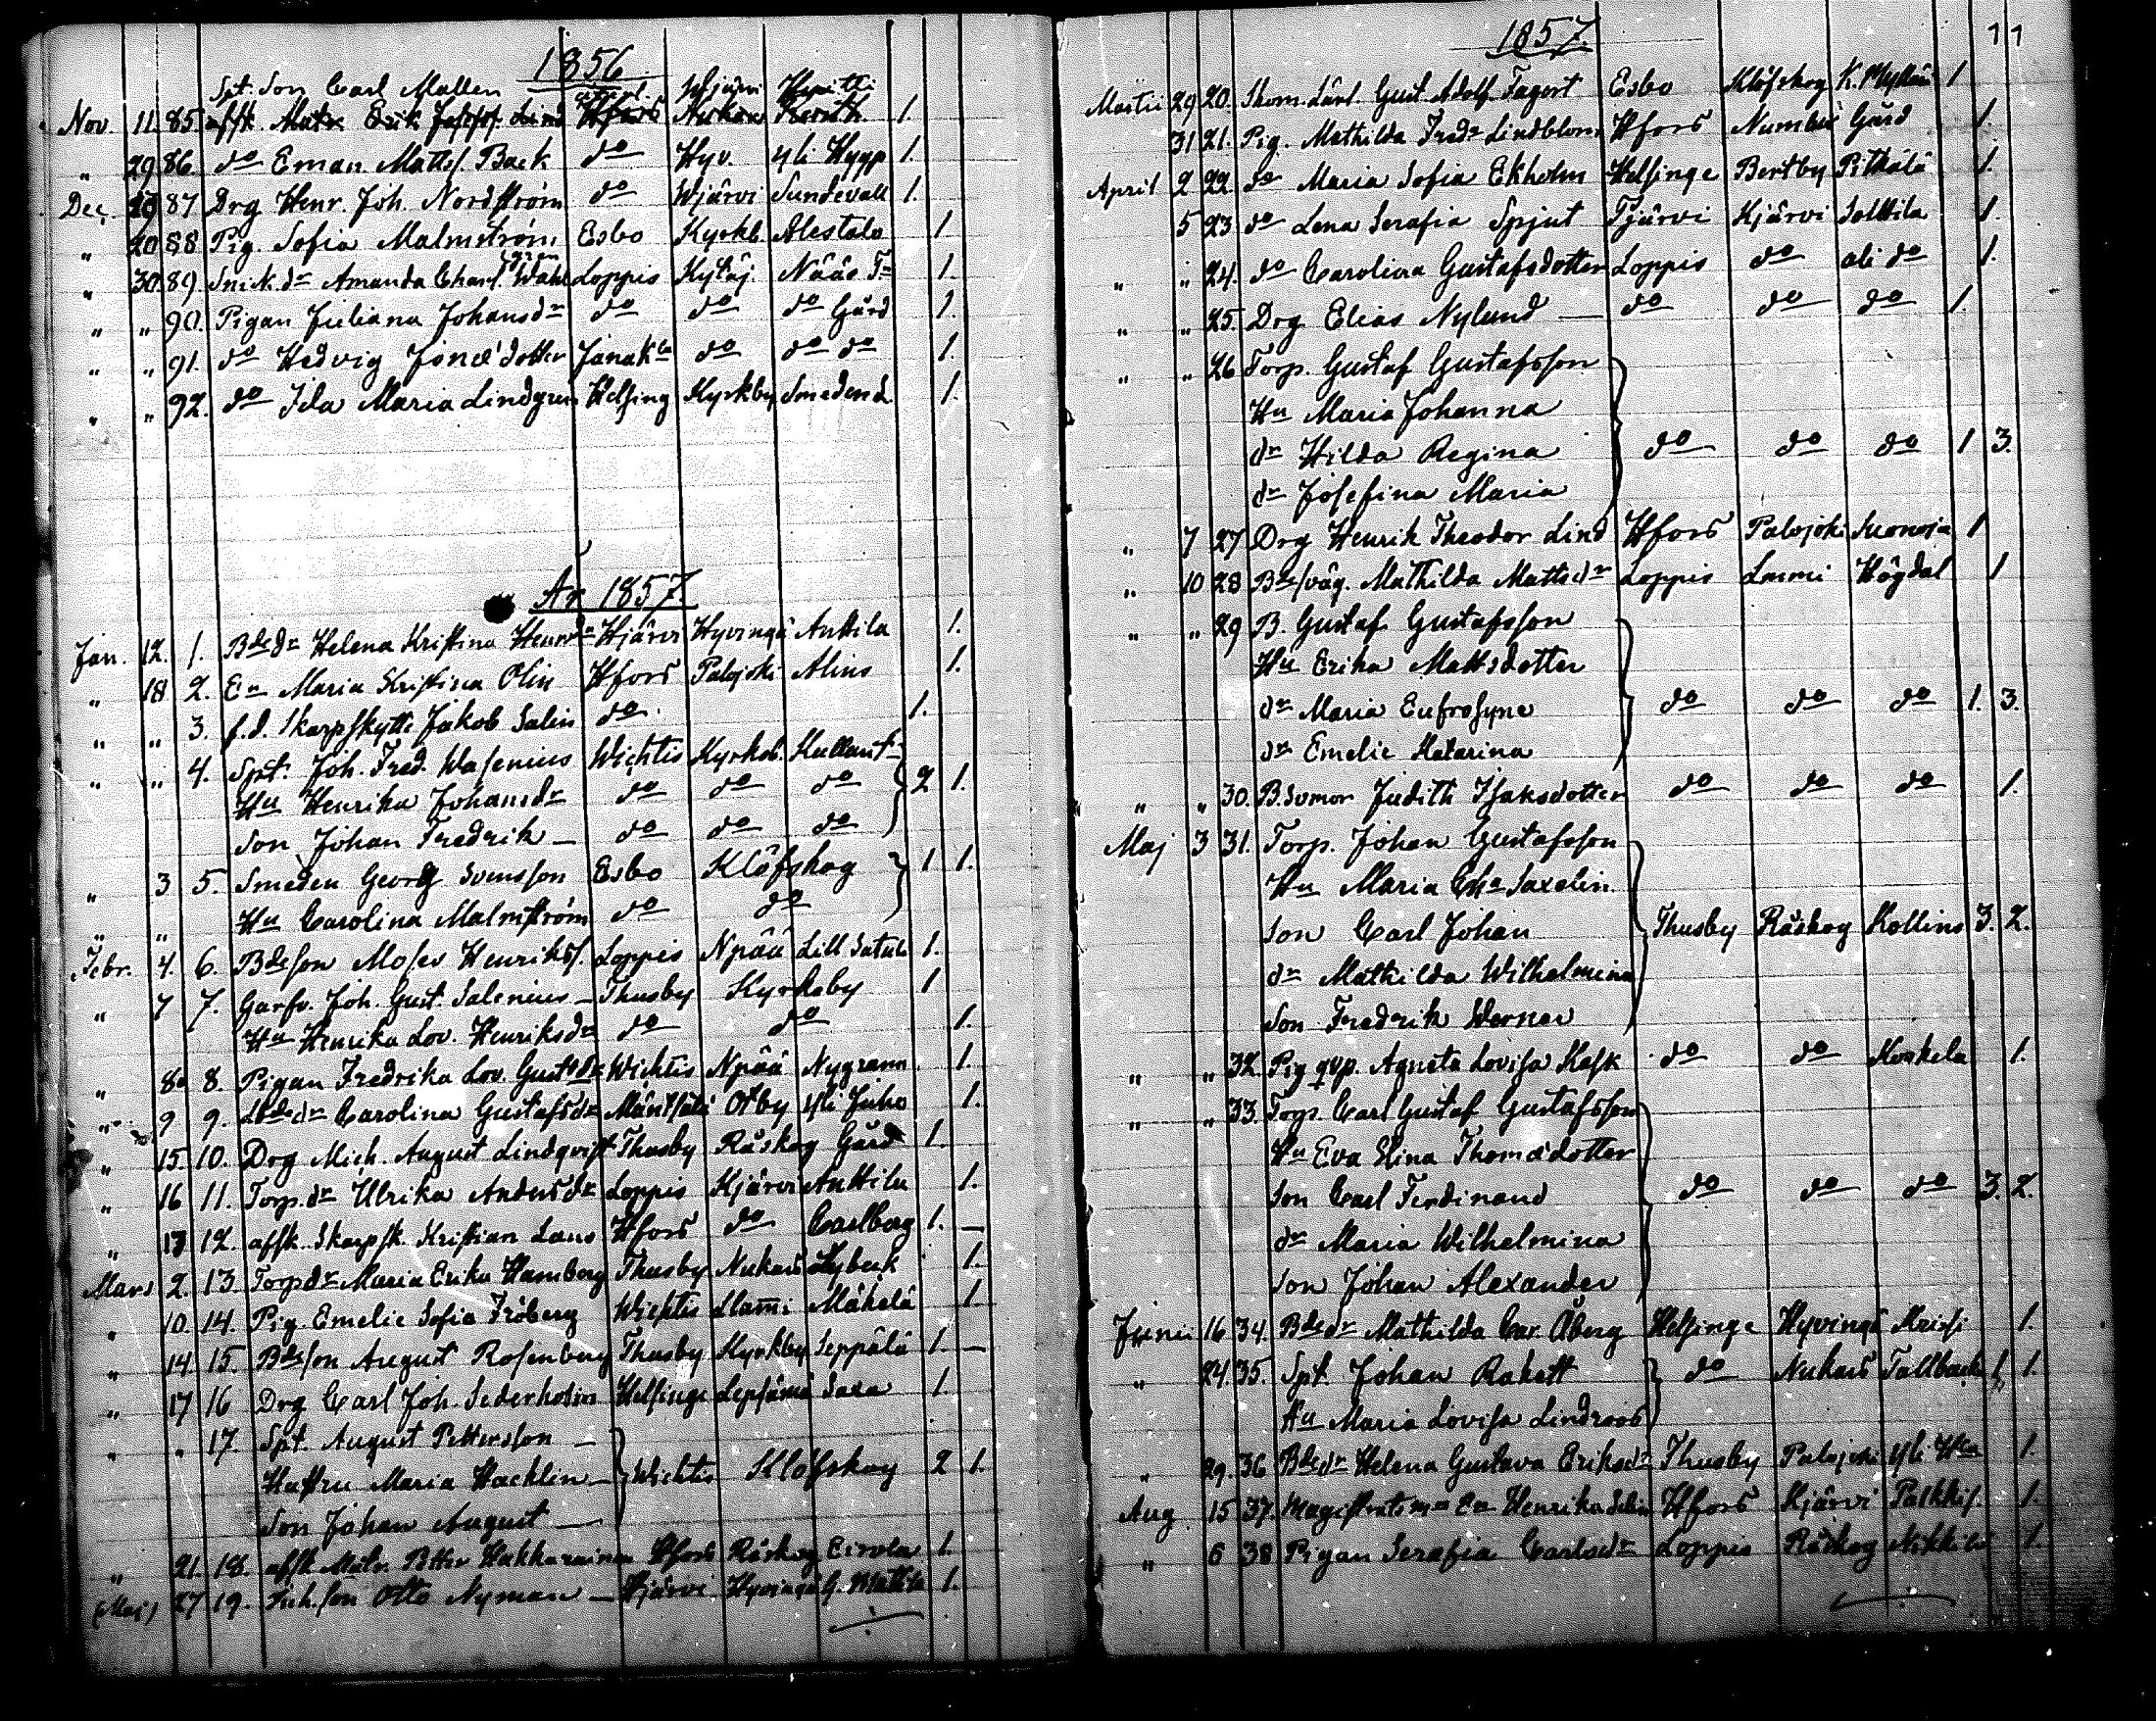 1856
Spt. Son Carl Mallen Hjärvi
Nov. 11. 85 afsk. Matr. Erik Josefss. Lind Hfors Nukars 1.
" 29 86. do Eman. Mattss. Back do Hyv. yli Hyyp 1.
Dec. 87 Drg Henr. Joh. Nordström do Wjärvi Sundevall 1.
" 20 88 Pig. Sofia Malmström Esbo Kyrkb. Alestalo 1
" 30 89. Snick. dr Amanda Charl. Wahlgren Loppis Kytäj. Nääs 1.
" " 90. Pigan Juliana Johansdr do do do Gård 1.
" " 91. do Hedvig Jonæ dotter Janakla do do do 1.
" " 92. do Ida Maria Lindgren Helsing Kyrkby Smedend 1.
År 1857.
Jan. 12. 1. Bdedr Helena Kristina Henrdr Hjärvi Hyvingä Anttila 1.
" 18 2. Em Maria Kristina Olin Hfors Palojoki Alins 1.
" " 3. f.d. Skarpskytt Jakob Salin do 1.
" " 4. Spt. Joh. Fred. Wasenius Wichtis Kyrkob.
Hu Henrika Johansdr do do do 2 1.
Son Johan Fredrik — do do do
" 3 5. Smeden Georg Svensson Esbo Klöfskog 1 1.
" " Hu Carolina Malmström do do
Febr. 4. 6. Bdeson Moses Henrikss. Loppis Npää Lill Satula 1.
" 7 7. Garfv. Joh. Gust. Salenius — Thusby Kyrkoby 1
Hu Henrika Lov. Henriksdr do do 1.
" 8 8. Pigan Fredrika Lov. Gustdr Wichtis Npää Nygrann 1.
" 9 9. Carolina Gustafsdr Mäntsälä Otby yli Juho 1.
" 15 10. Drg Mich. August Lindqvist Thusby Råskog Gård 1.
" 16 11. Torp. dr Ulrika Andersdr Loppis Kjärvi Anttila 1.
" 17 12. afsk. Skarpsk. Kristian Lans Hfors do Carlberg 1. —
Mars 2. 13. Torpdr Maria Erika Hamberg Thusby Nukars Nyback 1.
" 10. 14. Pig. Emelie Sofia Fröberg Wichtis Lami Mäkelä 1.
" 14 15. Bdeson August Rosenberg Thusby Kyrkby Seppälä 1. —
" 17 16 Drg Carl Joh. Sederholm Helsinge Lepsämä Saxa 1.
" " 17. Spt. August Pettersson —
Hustru Maria Hacklin — Wichtis Klöfskog 2 1.
Son Johan August —
" 21. 18. afsk Matr. Petter Hakkarainen Hfors Råskog Eirola 1.
(Maj) 27 19. Son Otto Nyman — Hjärvi Hyvingä G. Mattila 1.
1857. 11
Martii 29 20. Gust. Adolf Fagort Esbo Klöfskog 1
31 21. Pig. Mathilda Fredr Lindblom Hfors Numbis Gård 1.
April 2 22 do Maria Sofia Ekholm Helsinge Bertby Pitkälä 1.
5 23 do Lena Serafia Spjut Tjärvi Kjärvi Solttila 1.
" " 24. do Carolina Gustafsdotter Loppis do ali do 1.
" " 25. Drg Elias Nylund — do do do 1.
" " 26 Torp. Gustaf Gustafsson
Hu Maria Johanna
dr Hilda Regina do do do 1 3.
dr Josefina Maria
" 7 27 Drg Henrik Theodor Lind Hfors Palojoki Suonoja 1
" 10 28 Bdesväg. Mathilda Mattsdr Loppis Lammi Högdal 1
" " 29 B. Gustaf Gustafsson
Hu Erika Mattsdotter
dr Maria Eufrosyne do do do 1. 3.
dr Emelie Katarina
" " 30. B.somor Judith Isaksdotter do do do 1.
Maj 3 31. Torp. Johan Gustafsson
Hu Maria Cha Saxelin
Son Carl Johan Thusby Råskog Kollins 3. 2.
dr Mathilda Wilhelmina
Son Fredrik Werner
" " 32. Pig qvp. Agneta Lovisa Kask do do Konkela 1.
" " 33. Torp. Carl Gustaf Gustafsson
Hu Eva Stina Thomædotter
Son Carl Ferdinand do do do 3. 2.
dr Maria Wilhelmina
Son Johan Alexander
Junii 16 34. Bdedr Mathilda Car. Åberg Helsinge Hyvingä Krisi 1.
" 24. 35. Spt. Johan Rakett do Nukars Tallbacka 1 1.
Hu Maria Lovisa Lindroos
" 29. 36 Bdedr Helena Gustava Eriksdr Thusby Palojoki yli 1.
Aug. 15 37. Magistratsm Em Henrika Selin Hfors Kjärvi Palkkis. 1.
" 6 38 Pigan Serafia Carlsdr Loppis Råskog Nikkilä 1.